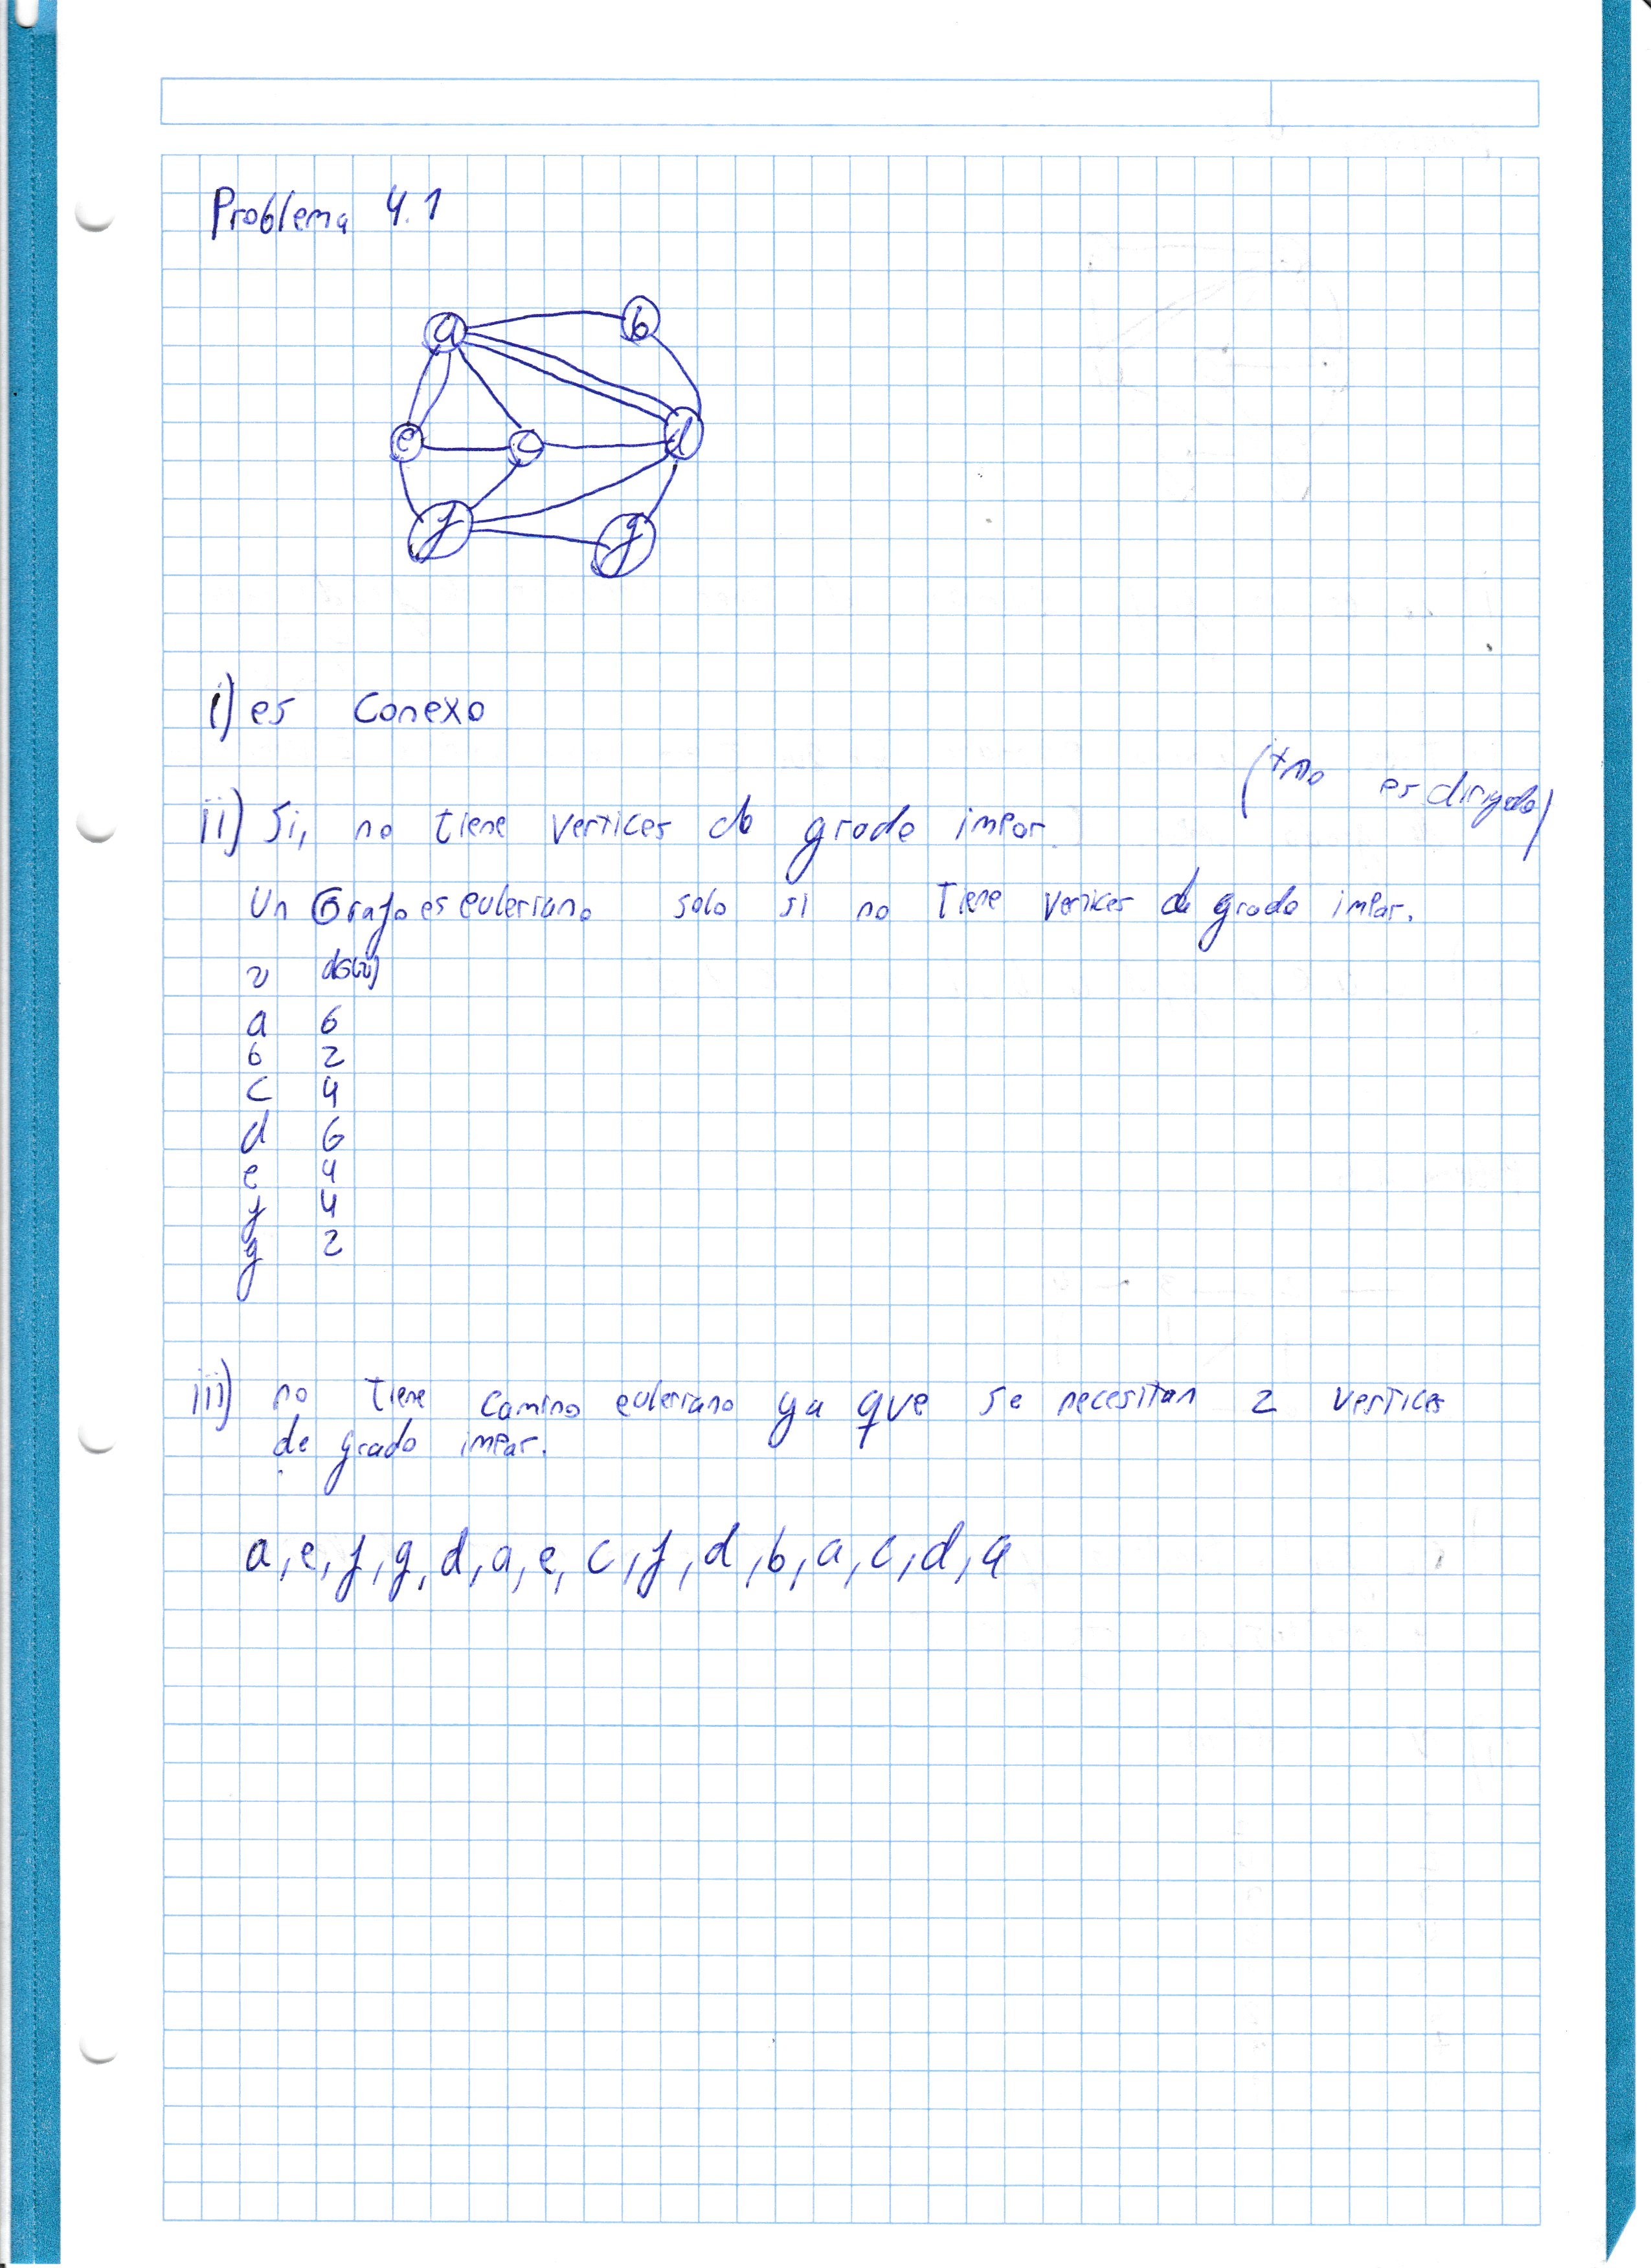 Problema 4.1
a
b
e
c
d
f
g
i) es Conexo
(+no es dirigido)
ii) Si, no tiene vertices de grado impar.
Un Grafo es euleriano solo si no Tiene vertices de grado impar.
v dG(v)
a 6
b 2
c 4
d 6
e 4
f 4
g 2
iii) no tiene camino euleriano ya que se necesitan 2 vertices
de grado impar.
a, e, f, g, d, a, e, c, f, d, b, a, c, d, a